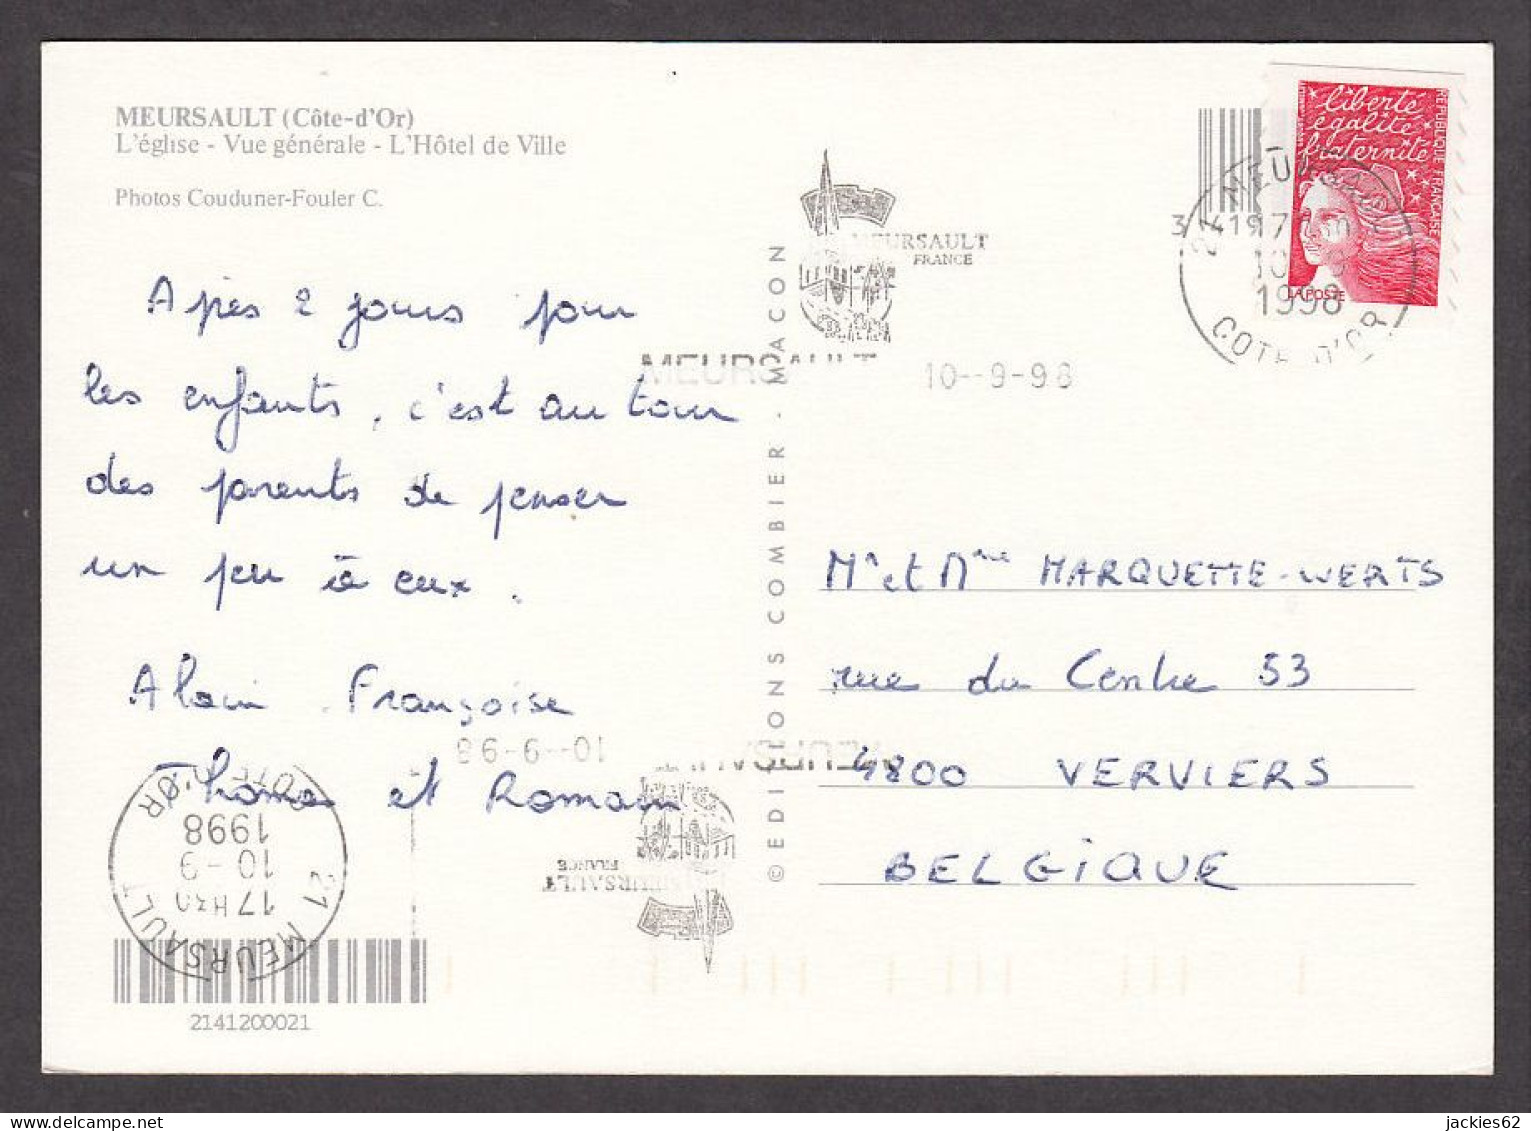 MEURSAULT (Côte-d'Or)
L'église - Vue générale - L'Hôtel de Ville
Photos Couduner-Fouler C.
Apès 2 jours pour
les enfants, c'est au tour
des parents de penser
un peu à eux.
Alain, Françoise
Thomas et Romain
2141200021
© EDITIONS COMBIER - MACON
MEURSAULT
FRANCE
MEURSAULT 10--9-98
liberté
égalité
fraternité
REPUBLIQUE FRANÇAISE
LA POSTE
21 MEURSAULT
1998
COTE D'OR
Mr et Mme MARQUETTE-WERTS
rue du Centre 53
4800 VERVIERS
BELGIQUE
MEURSAULT 10--9-98
MEURSAULT
FRANCE
21 MEURSAULT
17H30
10-9
1998
COTE D'OR
jackies62